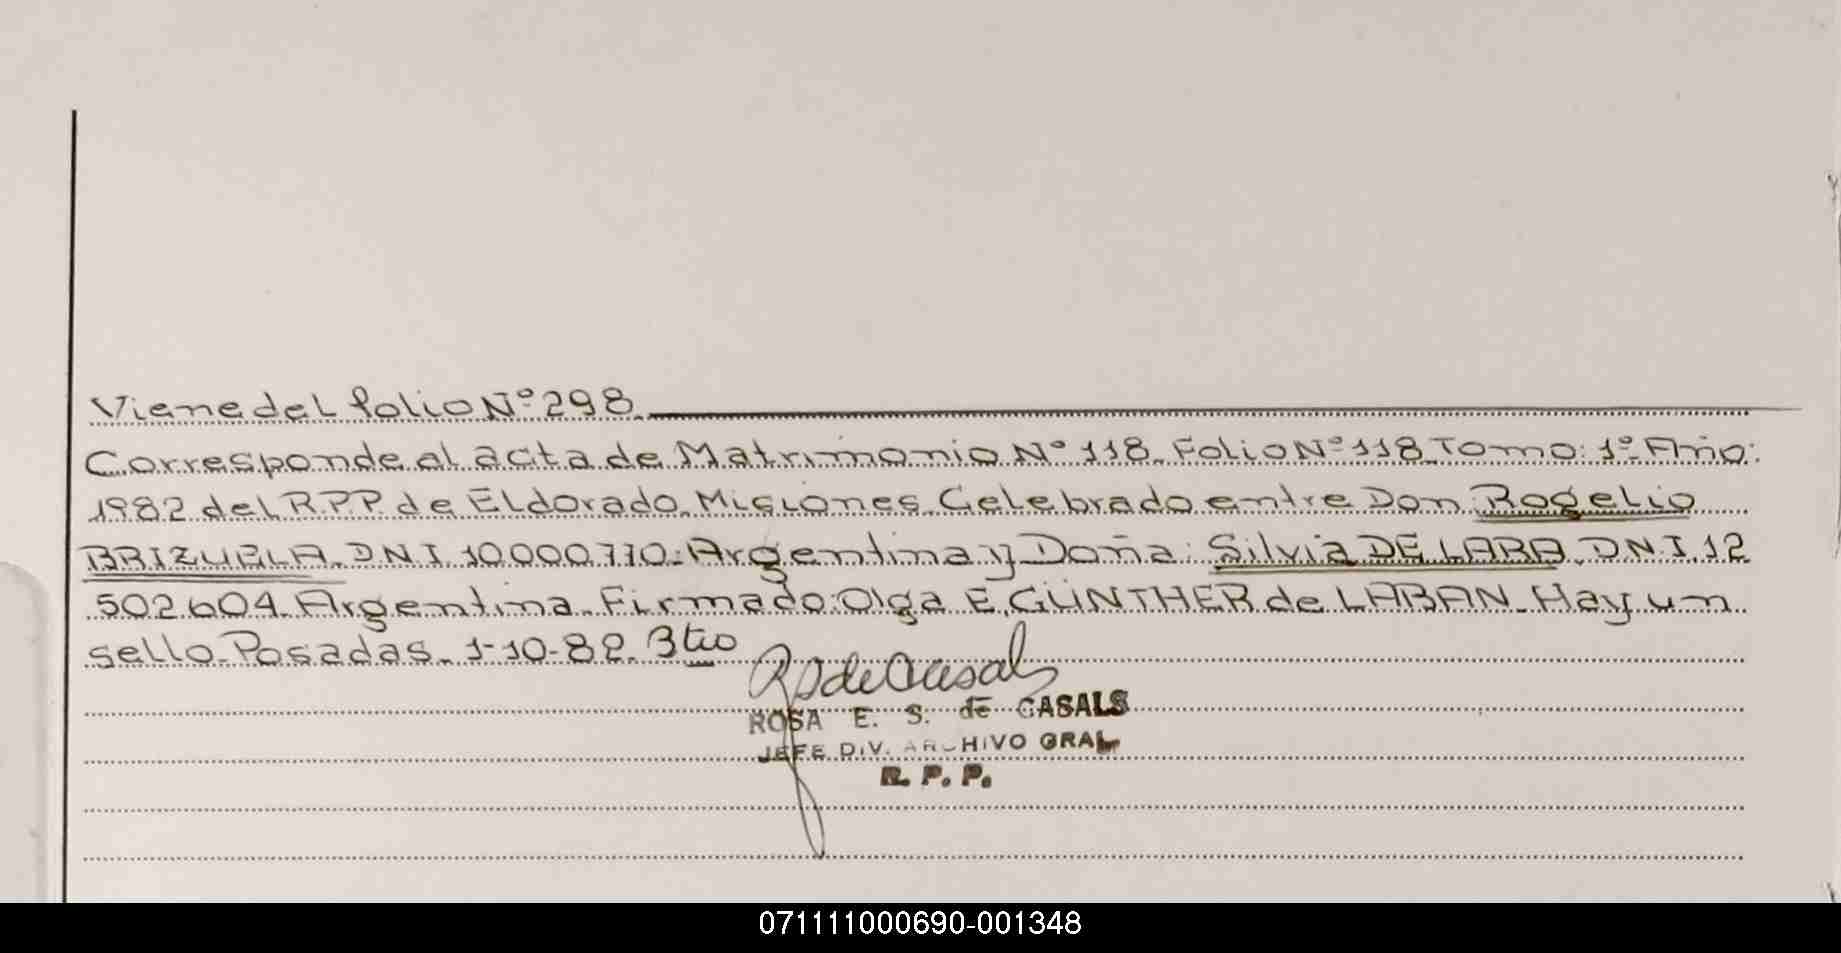 Viene del folio Nº 298.
Corresponde al acta de Matrimonio Nº 118. Folio Nº 118 Tomo: 1º Año:
1982 del R.P.P. de Eldorado. Misiones. Celebrado entre Don Rogelio
BRIZUELA. D.N.I. 10.000.770. Argentina y Doña: Silvia DE LARA. D.N.I. 12
502.604. Argentina. Firmado: Olga E. GÜNTHER de LABAN. Hay un
sello. Posadas. 1-10-82.
R S de Casals
ROSA E. S. de CASALS
JEFE DIV. ARCHIVO GRAL
R. P. P.
071111000690-001348